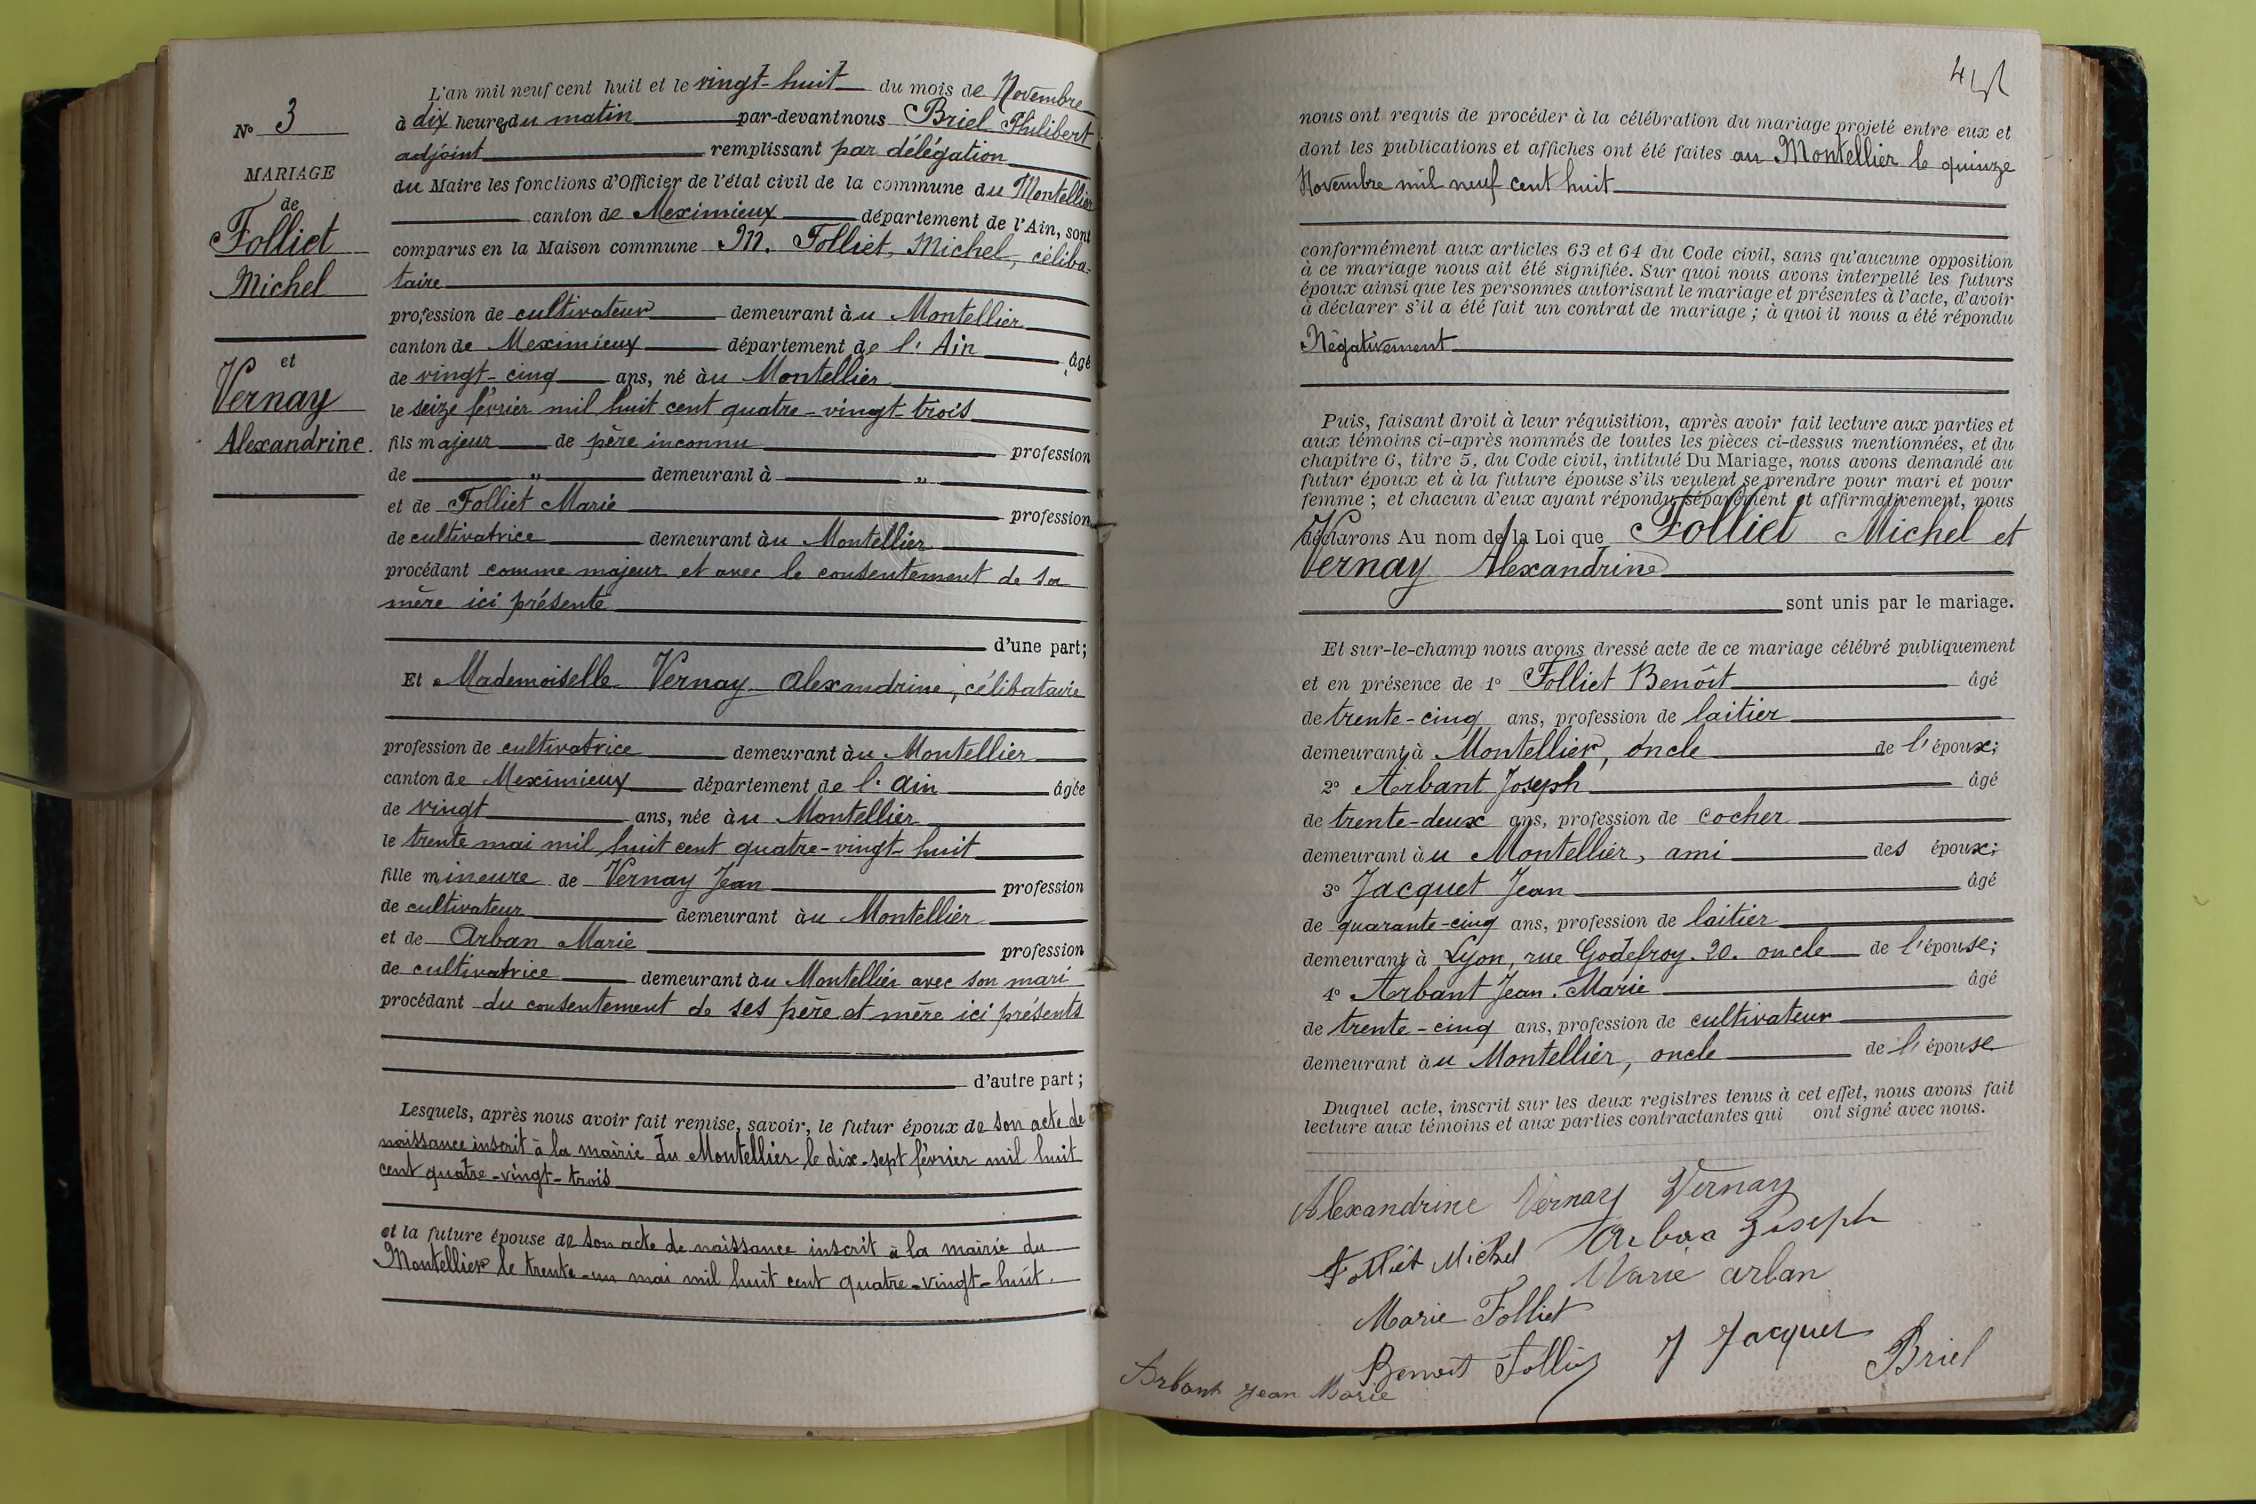 N° 3
MARIAGE
de
Folliet
Michel
et
Vernay
Alexandrine.
L'an mil neuf cent huit et le vingt-huit du mois de Novembre
à dix heures du matin par-devant nous Briel Philibert
adjoint remplissant par délégation
du Maire les fonctions d'Officier de l'état civil de la commune du Montellier
canton de Meximieux département de l'Ain, sont
comparus en la Maison commune M. Folliet, Michel, céliba-
taire
profession de cultivateur demeurant à u Montellier
canton de Meximieux département de l'Ain âgé
de vingt-cinq ans, né à u Montellier
le seize février mil huit cent quatre-vingt-trois
fils majeur de père inconnu profession
de " demeurant à "
et de Folliet Marie profession
de cultivatrice demeurant à u Montellier
procédant comme majeur et avec le consentement de sa
mère ici présente
d'une part;
Et Mademoiselle Vernay Alexandrine, célibataire
profession de cultivatrice demeurant à u Montellier
canton de Meximieux département de l'Ain âgée
de vingt ans, née à u Montellier
le trente mai mil huit cent quatre-vingt-huit
fille mineure de Vernay Jean profession
de cultivateur demeurant à u Montellier
et de Arban Marie profession
de cultivatrice demeurant à u Montellier avec son mari
procédant du consentement de ses père et mère ici présents
d'autre part;
Lesquels, après nous avoir fait remise, savoir, le futur époux de son acte de
naissance inscrit à la mairie du Montellier le dix-sept février mil huit
cent quatre-vingt-trois
et la future épouse de son acte de naissance inscrit à la mairie du
Montellier le trente-un mai mil huit cent quatre-vingt-huit.
nous ont requis de procéder à la célébration du mariage projeté entre eux et
dont les publications et affiches ont été faites au Montellier le quinze
Novembre mil neuf cent huit
conformément aux articles 63 et 64 du Code civil, sans qu'aucune opposition
à ce mariage nous ait été signifiée. Sur quoi nous avons interpellé les futurs
époux ainsi que les personnes autorisant le mariage et présentes à l'acte, d'avoir
à déclarer s'il a été fait un contrat de mariage; à quoi il nous a été répondu
Négativement
Puis, faisant droit à leur réquisition, après avoir fait lecture aux parties et
aux témoins ci-après nommés de toutes les pièces ci-dessus mentionnées, et du
chapitre 6, titre 5, du Code civil, intitulé Du Mariage, nous avons demandé au
futur époux et à la future épouse s'ils veulent se prendre pour mari et pour
femme; et chacun d'eux ayant répondu séparément et affirmativement, nous
déclarons Au nom de la Loi que Folliet Michel et
Vernay Alexandrine
sont unis par le mariage.
Et sur-le-champ nous avons dressé acte de ce mariage célébré publiquement
et en présence de 1° Folliet Benoît âgé
de trente-cinq ans, profession de laitier
demeurant à Montellier, oncle de l'époux;
2° Arbant Joseph âgé
de trente-deux ans, profession de cocher
demeurant à u Montellier, ami des époux;
3° Jacquet Jean âgé
de quarante-cinq ans, profession de laitier
demeurant à Lyon, rue Godefroy. 20. oncle de l'épouse;
4° Arbant Jean. Marie âgé
de trente-cinq ans, profession de cultivateur
demeurant à u Montellier, oncle de l'épouse
Duquel acte, inscrit sur les deux registres tenus à cet effet, nous avons fait
lecture aux témoins et aux parties contractantes qui ont signé avec nous.
Alexandrine Vernay Vernay
Folliet Michel Joseph
Marie Arban
Marie Folliet
J Jacquet
Benoit Briel
Arbant Jean Marie